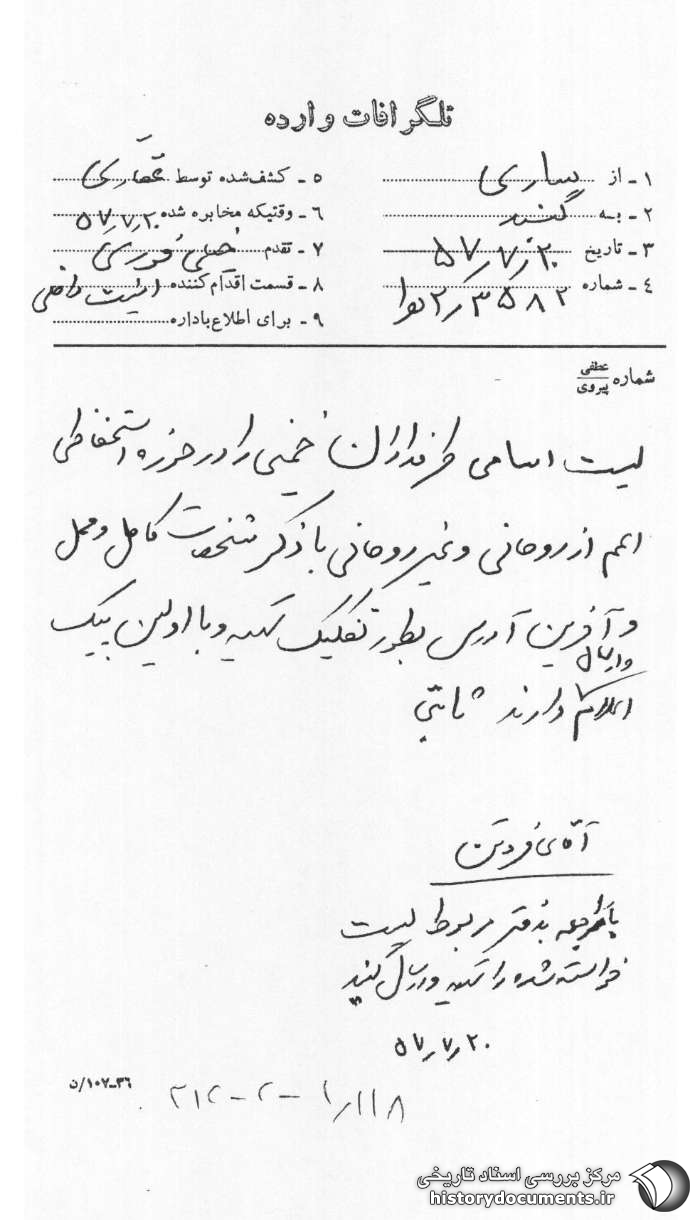 تلگرافات وارده
۱ - از ساری
۲ - به گنبد
۳ - تاریخ ۵۷٫۷٫۲۰
۴ - شماره ۲ر۳۵۸۲
۵ - کشف‌شده توسط
۶ - وقتیکه مخابره شده ۵۷٫۷٫۲۰
۷ - تقدم خیلی فوری
۸ - قسمت اقدام‌کننده امنیت داخلی
۹ - برای اطلاع باداره
شماره عطفی / پیروی
لیست اسامی طرفداران خمینی را در حوزه استحفاظی
اعم از روحانی و غیر روحانی با ذکر مشخصات کامل و محل
و آخرین آدرس بطور تفکیک تهیه و با اولین پیک
ارسال و
اعلام دارند ثابتی
آقای
با مراجعه بدفتر مربوط لیست
خواسته شده را تهیه و ارسال کنید
۵۷٫۷٫۲۰
۳۶-۱۰۷/ن
مرکز بررسی اسناد تاریخی
historydocuments.ir